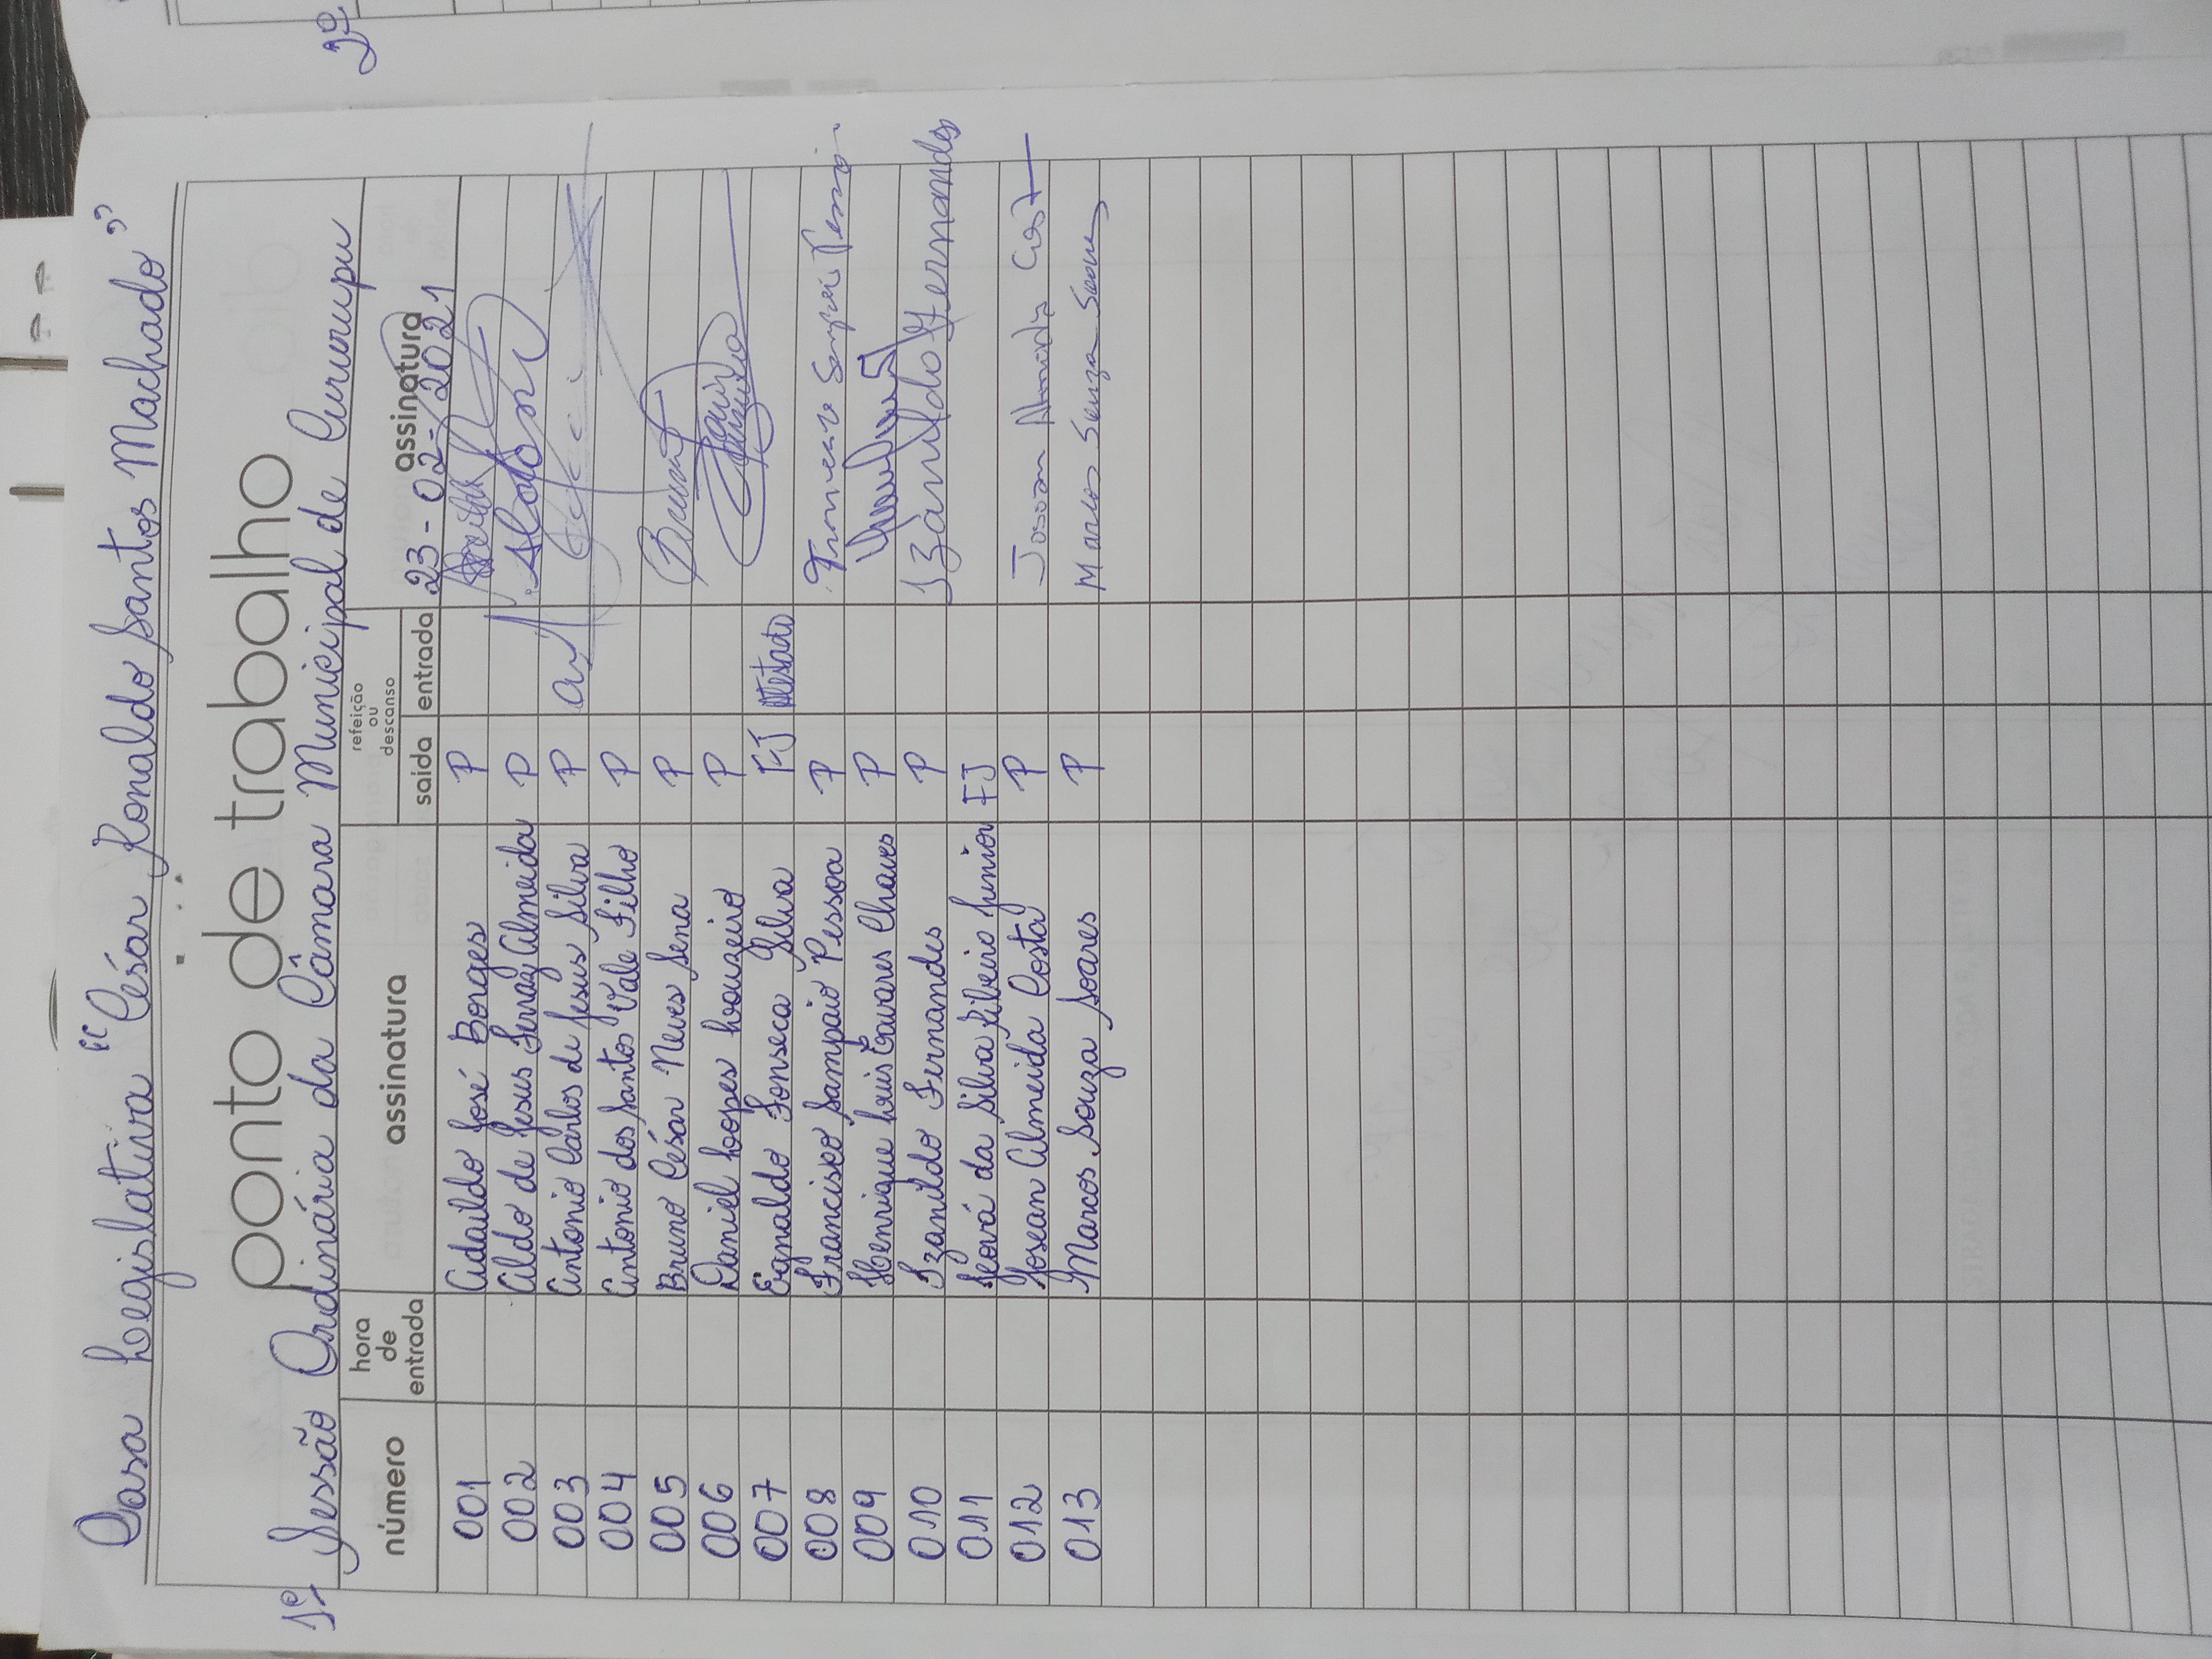 Casa Legislativa "César Ronaldo Santos Machado"
ponto de trabalho
1ª Sessão Ordinária da Câmara Municipal de Cururupu
número hora de entrada assinatura refeição ou descanso saída entrada assinatura
23-02-2021
001 Adaildo José Borges P
002 Aldo de Jesus Ferraz Almeida P
003 Antonio Carlos de Jesus Silva P
004 Antonio dos Santos Vale Filho P
005 Bruno César Neves Sena P
006 Daniel Lopes Louzeiro P
007 Eanaldo Fonseca Silva FJ Atestado
008 Francisco Sampaio Pessoa P Francisco Sampaio Pessoa
009 Henrique Luis Tavares Chaves P
010 Izanildo Fernandes P Izanildo Fernandes
011 Jeová da Silva Ribeiro Junior FJ
012 Josean Almeida Costa P Josean Almeida Cost
013 Marcos Souza Soares P Marcos Souza Soares
2º